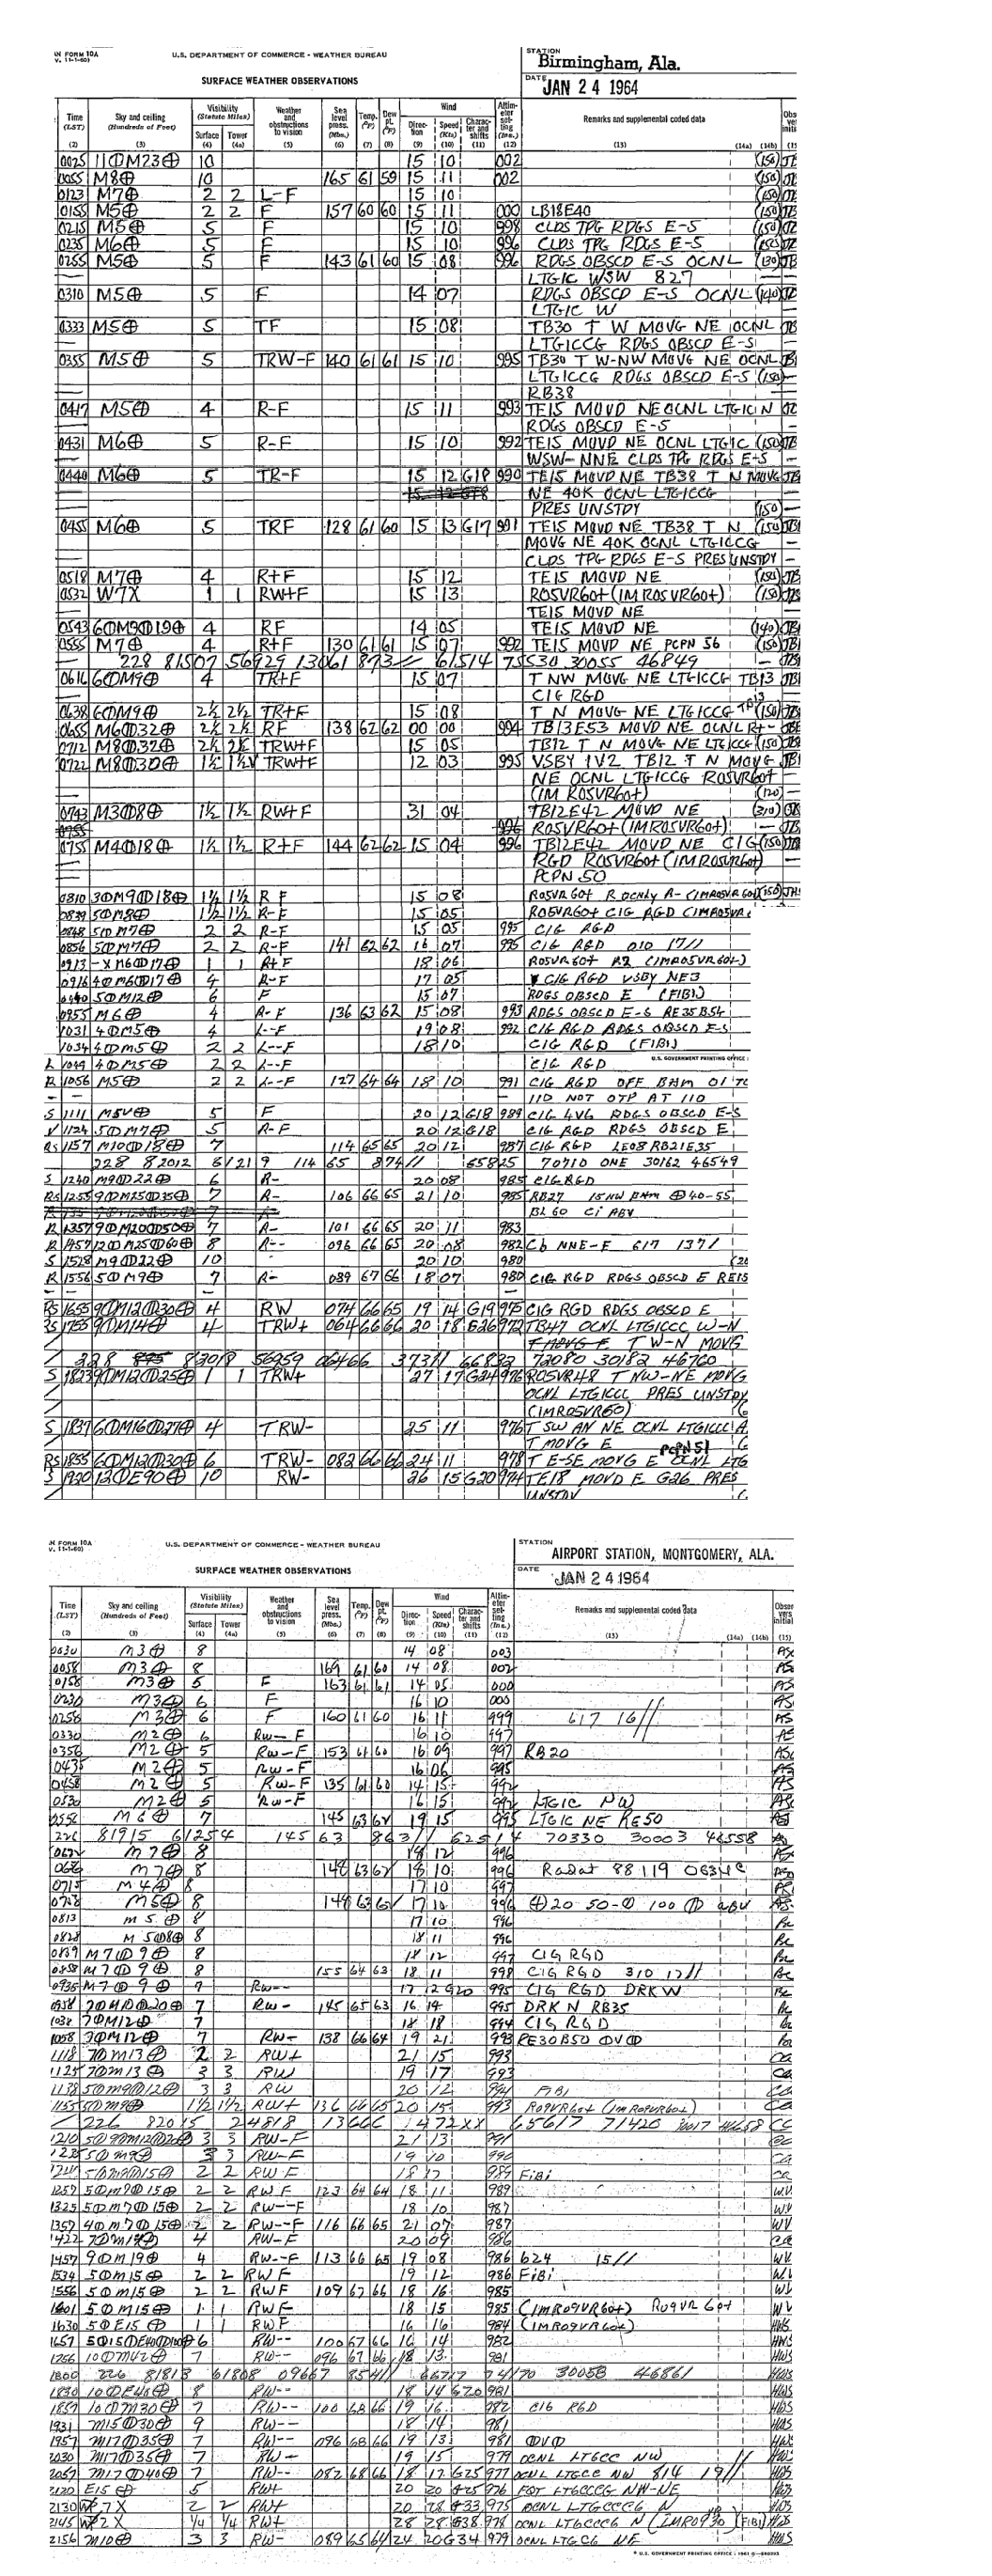 IN FORM 10A
V. (1-1-60)
U.S. DEPARTMENT OF COMMERCE - WEATHER BUREAU
SURFACE WEATHER OBSERVATIONS
STATION
Birmingham, Ala.
DATE
JAN 24 1964
Time (LST) Sky and ceiling (Hundreds of Feet) Visibility (Statute Miles) Surface Tower Weather and obstructions to vision Sea level press. (Mbs.) Temp. (°F) Dew pt. (°F) Wind Direction Speed (Kts) Character and shifts Altimeter setting (Ins.) Remarks and supplemental coded data
(2) (3) (4) (4a) (5) (6) (7) (8) (9) (10) (11) (12) (13) (14a) (14b)
0025 11⦶M23⊕ 10 15 10 002
0055 M8⊕ 10 165 61 59 15 11 002
0123 M7⊕ 2 2 L-F 15 10
0155 M5⊕ 2 2 F 157 60 60 15 11 000 LB18E40
0215 M5⊕ 5 F 15 10 998 CLDS TPG RDGS E-S
0235 M6⊕ 5 F 15 10 996 CLDS TPG RDGS E-S
0255 M5⊕ 5 F 143 61 60 15 08 996 RDGS OBSCD E-S OCNL
LTGIC WSW 827
0310 M5⊕ 5 F 14 07 RDGS OBSCD E-S OCNL
LTGIC W
0333 M5⊕ 5 TF 15 08 TB30 T W MOVG NE OCNL
LTGICCG RDGS OBSCD E-S
0355 M5⊕ 5 TRW-F 140 61 61 15 10 995 TB30 T W-NW MOVG NE OCNL
LTGICCG RDGS OBSCD E-S (150)
RB38
0417 M5⊕ 4 R-F 15 11 993 TE15 MOVD NE OCNL LTGIC N
RDGS OBSCD E-S
0431 M6⊕ 5 R-F 15 10 992 TE15 MOVD NE OCNL LTGIC (150)
WSW-NNE CLDS TPG RDGS E+S
0440 M6⊕ 5 TR-F 15 12 G18 990 TE15 MOVD NE TB38 T N MOVG
NE 40K OCNL LTGICCG
PRES UNSTDY (150)
0455 M6⊕ 5 TRF 128 61 60 15 13 G17 991 TE15 MOVD NE TB38 T N (150)
MOVG NE 40K OCNL LTGICCG
CLDS TPG RDGS E-S PRES UNSTDY
0518 M7⊕ 4 R+F 15 12 TE15 MOVD NE (150)
0532 W7X 1 1 RW+F 15 13 R05VR60+(IMR05VR60+) (150)
TE15 MOVD NE
0543 6⦶M9⦶19⊕ 4 RF 14 05 TE15 MOVD NE (140)
0555 M7⊕ 4 R+F 130 61 61 15 07 992 TE15 MOVD NE PCPN 56 (150)
228 81507 56929 13061 873// 61514 75530 30055 46849
0616 6⦶M9⊕ 4 TR+F 15 07 T NW MOVG NE LTGICCG TB13
CIG RGD
0638 6⦶M9⊕ 2½ 2½ TR+F 15 08 T N MOVG NE LTGICCG TB13 (150)
0655 M6⦶32⊕ 2½ 2½ RF 138 62 62 00 00 994 TB13E53 MOVD NE OCNL R+
0712 M8⦶32⊕ 2½ 2½ TRW+F 15 05 TB12 T N MOVG NE LTGICCG (150)
0722 M8⦶30⊕ 1½ 1½V TRW+F 12 03 995 VSBY 1V2 TB12 T N MOVG
NE OCNL LTGICCG R05VR60+
(IM R05VR60+) (120)
0743 M3⦶18⊕ 1½ 1½ RW+F 31 04 TB12E42 MOVD NE (310)
R05VR60+(IMR05VR60+)
0755 M4⦶18⊕ 1½ 1½ R+F 144 62 62 15 04 996 TB12E42 MOVD NE CIG (150)
RGD R05VR60+(IMR05VR60+)
PCPN 50
0810 3⦶M9⦶18⊕ 1½ 1½ R F 15 08 R05VR60+ R OCNLY R- (IMR05VR60+)(150)
5⦶M8⊕ 1½ 1½ R-F 15 05 R05VR60+ CIG RGD (IMR05VR
0848 5⦶M7⊕ 2 2 R-F 15 05 995 CIG RGD
0856 5⦶M7⊕ 2 2 R-F 141 62 62 16 07 995 CIG RGD 010 17//
0913 -X M6⦶17⊕ 1 1 R+F 18 06 R05VR60+ R2 (IMR05VR60+)
0916 4⦶M6⦶17⊕ 4 R-F 17 05 CIG RGD VSBY NE3
0940 5⦶M12⊕ 6 F 15 07 RDGS OBSCD E (FIBI)
0955 M6⊕ 4 R-F 136 63 62 15 08 993 RDGS OBSCD E-S RE35B54
1031 4⦶M5⊕ 4 L--F 19 08 992 CIG RGD RDGS OBSCD E-S
1034 4⦶M5⊕ 2 2 L--F 18 10 CIG RGD (FIBI)
U.S. GOVERNMENT PRINTING OFFICE:
L 1044 4⦶M5⊕ 2 2 L--F CIG RGD
R 1056 M5⊕ 2 2 L--F 127 64 64 18 10 991 CIG RGD OFF BHM 01 TO
11D NOT OTP AT 110
S 1111 M5V⊕ 5 F 20 12 G18 989 CIG 4V6 RDGS OBSCD E-S
1124 5⦶M7⊕ 5 R-F 20 12 G18 CIG RGD RDGS OBSCD E
RS 1157 M10⦶18⊕ 7 114 65 65 20 12 987 CIG RGD LE08 RB21E35
228 82012 61219 114 65 874// 65825 70710 ONE 30162 46549
S 1240 M9⦶22⊕ 6 R- 20 08 985 CIG RGD
RS 1255 9⦶M25⦶35⊕ 7 R- 106 66 65 21 10 985 RB27 15NW BHM ⊕40-55
BL 60 Ci ABV
R 1357 9⦶M20⦶50⊕ 7 R- 101 66 65 20 11 983
R 1457 12⦶M25⦶60⊕ 8 R-- 096 66 65 20 08 982 Cb NNE-E 617 1371
S 1528 M9⦶22⊕ 10 20 10 980
R 1556 5⦶M9⊕ 7 R- 089 67 66 18 07 980 CIG RGD RDGS OBSCD E RE15
RS 1655 9⦶M12⦶30⊕ 4 RW 074 66 65 19 14 G19 975 CIG RGD RDGS OBSCD E
RS 1755 9⦶M14⊕ 4 TRW+ 064 66 66 20 18 G26 972 TB47 OCNL LTGICCC W-N
T W-N MOVG
228 82018 56959 06466 373// 66832 72080 30182 46760
S 1823 9⦶M12⦶25⊕ 1 1 TRW+ 27 17 G24 976 R05VR48 T NW-NE MOVG
OCNL LTGICCC PRES UNSTDY
(IMR05VR60)
S 1837 6⦶M16⦶27⊕ 4 TRW- 25 11 976 T SW AN NE OCNL LTGICCC A
T MOVG E PCPN 51
RS 1855 6⦶M12⦶30⊕ 6 TRW- 082 66 66 24 11 978 T E-SE MOVG E OCNL LTG
S 1920 12⦶E90⊕ 10 RW- 26 15 G20 974 TE18 MOVD E G26 PRES
UNSTDY
IN FORM 10A
V. (1-1-60)
U.S. DEPARTMENT OF COMMERCE - WEATHER BUREAU
SURFACE WEATHER OBSERVATIONS
STATION
AIRPORT STATION, MONTGOMERY, ALA.
DATE
JAN 24 1964
Time (LST) Sky and ceiling (Hundreds of Feet) Visibility (Statute Miles) Surface Tower Weather and obstructions to vision Sea level press. (Mbs.) Temp. (°F) Dew pt. (°F) Wind Direction Speed (Kts) Character and shifts Altimeter setting (Ins.) Remarks and supplemental coded data Observers initial
(2) (3) (4) (4a) (5) (6) (7) (8) (9) (10) (11) (12) (13) (14a) (14b) (15)
0030 M3⊕ 8 14 08 003
0058 M3⊕ 8 169 61 60 14 08 002 AS
0158 M3⊕ 5 F 163 61 61 14 05 000 AS
0230 M3⊕ 6 F 16 10 000 AS
0258 M3⊕ 6 F 160 61 60 16 11 999 617 16// AS
0330 M2⊕ 6 RW--F 16 10 997
0358 M2⊕ 5 RW-F 153 61 60 16 09 997 RB20
043 M2⊕ 5 RW-F 16 06 995
0458 M2⊕ 5 RW-F 135 61 60 14 15 992 AS
0530 M2⊕ 5 RW-F 16 15 992 LTGIC NW
0556 M6⊕ 7 145 63 62 19 15 995 LTGIC NE RE50
226 81915 61254 145 63 863// 62514 70330 30003 46558
M7⊕ 8 18 12 996
0656 M7⊕ 8 148 63 62 18 10 996 Radat 88119
0715 M4⊕ 8 17 10 997
0758 M5⊕ 8 148 63 62 17 10 996 ⊕20 50-⦶ 100 ⦶ abv
0813 M5⊕ 8 17 10 996
0828 M5⦶8⊕ 8 18 11 996
0839 M7⦶9⊕ 8 18 12 997 CIG RGD
0858 M7⦶9⊕ 8 155 64 63 18 11 998 CIG RGD 310 17//
0935 M7⦶9⊕ 7 RW-- 17 12 G20 995 CIG RGD DRK W
0958 7⦶M10⦶20⊕ 7 RW- 145 65 63 16 14 995 DRK N RB35
1038 7⦶M12⊕ 7 18 18 994 CIG RGD
1058 7⦶M12⊕ 7 RW- 138 66 64 19 21 993 RE30B50 ⦶V⦶
1118 7⦶M13⊕ 2 2 RW+ 21 15 993
1125 7⦶M13⊕ 3 3 RW 19 17 993
1138 5⦶M9⦶12⊕ 3 3 RW 20 12 994 FIBI
1155 5⦶M9⊕ 1½ 1½ RW+ 136 66 65 20 15 993 R09VR60+ (IMR09VR60+)
226 82015 24818 13666 1472XX 65617 71420 30017 46658
1210 5⦶9⦶M12⦶20⊕ 3 3 RW-F 21 13 991
1235 5⦶M9⊕ 3 3 RW-F 19 10 990
5⦶M9⦶15⊕ 2 2 RW F 18 12 989 FIBI
1257 5⦶M9⦶15⊕ 2 2 RW F 123 64 64 18 11 989 WV
1325 5⦶M7⦶15⊕ 2 2 RW--F 18 10 987 WV
1357 4⦶M7⦶15⊕ 2 2 RW--F 116 66 65 21 07 987 WV
1422 7⦶M19⊕ 4 RW-F 20 09 986
1457 9⦶M19⊕ 4 RW--F 113 66 65 19 08 986 624 15// WV
1534 5⦶M15⊕ 2 2 RWF 19 12 986 FIBI
1556 5⦶M15⊕ 2 2 RWF 109 67 66 18 16 985
1601 5⦶M15⊕ 1 1 RWF 18 15 985 (IMR09VR60+) R09VR60+ WV
1630 5⦶E15⊕ 1 1 RWF 16 16 984 (IMR09VR60+)
1657 5⦶15⦶E40⦶100⊕ 6 RW-- 100 67 66 16 14 982 HWS
1756 10⦶M42⊕ 7 RW-- 096 67 66 18 13 981 HWS
1800 226 81813 61808 09667 854// 66717 74170 30058 46861 HWS
1830 10⦶E40⊕ 8 RW-- 18 14 G20 981
1859 10⦶M30⊕ 7 RW-- 100 68 66 19 16 982 CIG RGD HWS
1931 M15⦶30⊕ 9 RW-- 18 14 981 HWS
1957 M17⦶35⊕ 7 RW-- 096 68 66 19 13 981 ⦶V⦶
2030 M17⦶35⊕ 7 RW- 19 15 979 OCNL LTGCC NW
2057 M17⦶40⊕ 7 RW-- 082 68 66 18 17 G25 977 OCNL LTGCC NW 814 19//
2120 E15⊕ 5 RW+ 20 20 G25 976 FQT LTGCCCG NW-NE
2130 W7X 2 2 RW+ 20 28 G33 975 OCNL LTGCCCG N
2145 W2X ¼ ¼ RW+ 28 28 G38 978 OCNL LTGCCCG N (FIBI)
2156 M10⊕ 3 3 RW- 089 65 64 24 20 G34 979 OCNL LTGCG NE HWS
* U.S. GOVERNMENT PRINTING OFFICE: 1961